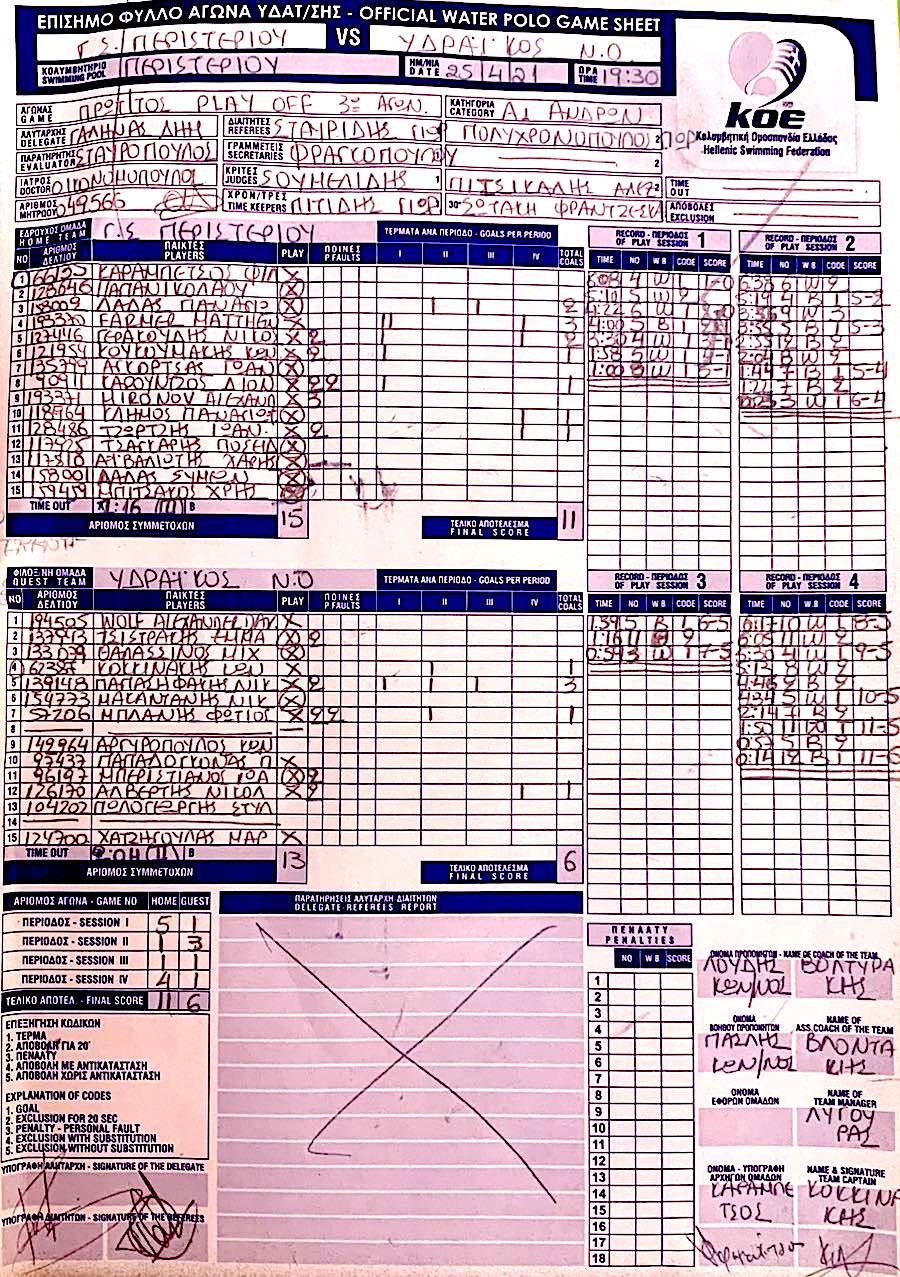 ΕΠΙΣΗΜΟ ΦΥΛΛΟ ΑΓΩΝΑ ΥΔΑΤ/ΣΗΣ - OFFICIAL WATER POLO GAME SHEET
Γ.Σ. ΠΕΡΙΣΤΕΡΙΟΥ VS ΥΔΡΑΪΚΟΣ Ν.Ο
ΚΟΛΥΜΒΗΤΗΡΙΟ SWIMMING POOL ΠΕΡΙΣΤΕΡΙΟΥ ΗΜ/ΝΙΑ DATE 25/4/21 ΩΡΑ TIME 19:30
κοε
Κολυμβητική Ομοσπονδία Ελλάδος
Hellenic Swimming Federation
ΑΓΩΝΑΣ GAME PLAY OFF 3ος ΑΓΩΝ. ΚΑΤΗΓΟΡΙΑ CATEGORY Α1 ΑΝΔΡΩΝ
ΑΛΥΤΑΡΧΗΣ DELEGATE ΓΑΛΗΝΑΣ ΔΗΗ ΔΙΑΙΤΗΤΕΣ REFEREES ΣΤΑΥΡΙΔΗΣ ΓΙΩΡ ΠΟΛΥΧΡΟΝΟΠΟΥΛΟ 2 ΓΙΩΡ
ΠΑΡΑΤΗΡΗΤΗΣ EVALUATOR ΣΤΑΥΡΟΠΟΥΛΟΣ ΓΡΑΜΜΕΤΕΙΣ SECRETARIES ΦΡΑΓΚΟΠΟΥΛΟΣ 2
ΙΑΤΡΟΣ DOCTOR ΟΙΚΟΝΟΜΟΠΟΥΛΟΥ ΚΡΙΤΕΣ JUDGES ΣΟΥΜΕΛΙΔΗΣ 1 ΠΙΤΣΙΚΑΛΗΣ ΑΛΕΞ 2 TIME OUT
ΑΡΙΘΜΟΣ ΜΗΤΡΩΟΥ 049566 ΧΡΟΝ/ΤΡΕΣ TIME KEEPERS ΠΙΤΙΔΗΣ ΓΙΩΡ 30" ΣΩΤΑΚΗ ΦΡΑΝΤΖΕΣΚΑ ΑΠΟΒΟΛΕΣ EXCLUSION
ΓΗΠΕΔΟΥΧΟΣ ΟΜΑΔΑ HOME TEAM Γ.Σ ΠΕΡΙΣΤΕΡΙΟΥ ΤΕΡΜΑΤΑ ΑΝΑ ΠΕΡΙΟΔΟ - GOALS PER PERIOD
NO ΑΡΙΘΜΟΣ ΔΕΛΤΙΟΥ ΠΑΙΚΤΕΣ PLAYERS PLAY ΠΟΙΝΕΣ P.FAULTS I II III IV TOTAL GOALS
1 ΚΑΡΑΜΠΕΤΣΟΣ ΦΙΛ X
2 ΠΑΠΑΝΙΚΟΛΑΟΥ X
3 ΛΑΛΑΣ ΠΑΝΑΓΙΩ X I I 2
4 193380 FARMER MATTHEW X II I 3
5 127446 ΓΕΡΑΚΟΥΔΗΣ ΝΙΚΟ X 2 II 2
6 121954 ΚΟΥΚΟΥΜΑΚΗΣ ΚΩΝ X 2 I 1
7 135799 ΑΣΚΟΡΤΣΑΣ ΙΩΑΝ X
8 90911 ΚΑΡΟΥΝΤΖΟΣ ΔΙΟΝ X 2 2 I 1
9 193371 MIRONOV ΑΛΕΧΑΝΔ X 3
10 118964 ΚΛΗΜΟΣ ΠΑΝΑΓΙΩΤ X I 1
11 128486 ΤΖΩΡΤΖΗΣ ΙΩΑΝ. X 2 I 1
12 117925 ΤΣΑΓΚΑΡΗΣ ΠΟΣΕΙΔ X
13 117810 ΑΪΒΑΛΙΩΤΗΣ ΧΑΡΗΣ X
14 15800 ΛΑΛΑΣ ΣΥΜΕΩΝ X
15 159419 ΜΠΙΤΣΑΚΟΣ ΧΡΗΣ X
TIME OUT 1:16 III B
ΑΡΙΘΜΟΣ ΣΥΜΜΕΤΟΧΩΝ 15 ΤΕΛΙΚΟ ΑΠΟΤΕΛΕΣΜΑ FINAL SCORE 11
RECORD - ΠΕΡΙΟΔΟΣ OF PLAY SESSION 1
TIME NO W B CODE SCORE
6:08 4 W 1 1-0
5:10 5 W 2
4:22 6 W 1
4:00 5 B 1 2-1
3:30 4 W 1 3-1
1:58 5 W 1 4-1
1:00 8 W 1 5-1
RECORD - ΠΕΡΙΟΔΟΣ OF PLAY SESSION 2
TIME NO W B CODE SCORE
6:38 6 W 2
5:19 4 B 1 5-2
3:36 9 W 3
3:35 5 B 1 5-3
2:35 12 B 2
2:04 8 W 2
1:44 7 B 1 5-4
1:21 7 B 2
0:23 3 W 1 6-4
ΦΙΛΟΞΕΝΗ ΟΜΑΔΑ QUEST TEAM ΥΔΡΑΪΚΟΣ Ν.Ο ΤΕΡΜΑΤΑ ΑΝΑ ΠΕΡΙΟΔΟ - GOALS PER PERIOD
NO ΑΡΙΘΜΟΣ ΔΕΛΤΙΟΥ ΠΑΙΚΤΕΣ PLAYERS PLAY ΠΟΙΝΕΣ P.FAULTS I II III IV TOTAL GOALS
1 194505 WOLF ALEXANDER DAV X
2 137943 ΤΣΙΣΤΡΑΚΗΣ ΕΜΜΑ X 2
3 133079 ΘΑΛΑΣΣΙΝΟΣ ΜΙΧ X
4 62387 ΚΟΚΚΙΝΑΚΗΣ ΚΩΝ X I 1
5 139148 ΠΑΠΑΣΗΦΑΚΗΣ ΝΙΚ X 2 I I I 3
6 154773 ΜΑΣΛΑΝΤΑΝΗΣ ΝΙΚ X
7 57206 ΜΠΛΑΝΗΣ ΦΩΤΙΟΣ X 2 2 I 1
8
9 149964 ΑΡΓΥΡΟΠΟΥΛΟΣ ΚΩΝ
10 97437 ΠΑΠΑΔΟΓΚΟΝΑΣ Π X
11 96197 ΜΠΕΡΙΣΤΙΑΝΟΣ ΙΩΑ X 2
12 126170 ΑΛΒΕΡΤΗΣ ΝΙΚΟΛ X 2 I 1
13 104202 ΠΟΛΟΓΕΩΡΓΗΣ ΣΤΥΛ
14
15 124700 ΧΑΤΖΗΓΟΥΛΑΣ ΜΑΡ X
TIME OUT 2:04 II B
ΑΡΙΘΜΟΣ ΣΥΜΜΕΤΟΧΩΝ 13 ΤΕΛΙΚΟ ΑΠΟΤΕΛΕΣΜΑ FINAL SCORE 6
RECORD - ΠΕΡΙΟΔΟΣ OF PLAY SESSION 3
TIME NO W B CODE SCORE
1:39 5 B 1 6-5
1:16 11 B 2
0:59 3 W 1 7-5
RECORD - ΠΕΡΙΟΔΟΣ OF PLAY SESSION 4
TIME NO W B CODE SCORE
6:17 10 W 1 8-5
6:05 11 W 2
5:30 4 W 1 9-5
5:13 8 W 2
4:46 2 B 2
4:24 5 W 1 10-5
2:14 7 B 2
1:50 11 W 1 11-5
0:57 5 B 2
0:14 12 B 1 11-6
ΑΡΙΘΜΟΣ ΑΓΩΝΑ - GAME NO HOME GUEST
ΠΕΡΙΟΔΟΣ - SESSION I 5 1
ΠΕΡΙΟΔΟΣ - SESSION II 1 3
ΠΕΡΙΟΔΟΣ - SESSION III 1 1
ΠΕΡΙΟΔΟΣ - SESSION IV 4 1
ΤΕΛΙΚΟ ΑΠΟΤΕΛ. - FINAL SCORE 11 6
ΕΠΕΞΗΓΗΣΗ ΚΩΔΙΚΩΝ
1. ΤΕΡΜΑ
2. ΑΠΟΒΟΛΗ ΓΙΑ 20'
3. ΠΕΝΑΛΤΥ
4. ΑΠΟΒΟΛΗ ΜΕ ΑΝΤΙΚΑΤΑΣΤΑΣΗ
5. ΑΠΟΒΟΛΗ ΧΩΡΙΣ ΑΝΤΙΚΑΤΑΣΤΑΣΗ
EXPLANATION OF CODES
1. GOAL
2. EXCLUSION FOR 20 SEC
3. PENALTY - PERSONAL FAULT
4. EXCLUSION WITH SUBSTITUTION
5. EXCLUSION WITHOUT SUBSTITUTION
ΥΠΟΓΡΑΦΗ ΑΛΥΤΑΡΧΗ - SIGNATURE OF THE DELEGATE
ΥΠΟΓΡΑΦΗ ΔΙΑΙΤΗΤΩΝ - SIGNATURE OF THE REFEREES
ΠΑΡΑΤΗΡΗΣΕΙΣ ΑΛΥΤΑΡΧΗ ΔΙΑΙΤΗΤΩΝ
DELEGATE-REFEREES REPORT
ΠΕΝΑΛΤΥ
PENALTIES
NO W B SCORE
1
2
3
4
5
6
7
8
9
10
11
12
13
14
15
16
17
18
ΟΝΟΜΑ ΠΡΟΠΟΝΗΤΩΝ - NAME OF COACH OF THE TEAM
ΛΟΥΔΗΣ ΚΩΝ/ΝΟΣ ΒΟΛΤΥΡΑΚΗΣ
ΟΝΟΜΑ ΒΟΗΘΟΥ ΠΡΟΠΟΝΗΤΩΝ NAME OF ASS.COACH OF THE TEAM
ΠΑΣΛΗΣ ΚΩΝ/ΝΟΣ ΒΛΟΝΤΑΚΗΣ
ΟΝΟΜΑ ΕΦΟΡΩΝ ΟΜΑΔΩΝ NAME OF TEAM MANAGER
ΛΥΓΟΥΡΑΣ
ΟΝΟΜΑ - ΥΠΟΓΡΑΦΗ ΑΡΧΗΓΩΝ ΟΜΑΔΩΝ NAME & SIGNATURE TEAM CAPTAIN
ΚΑΡΑΜΠΕΤΣΟΣ ΚΟΚΚΙΝΑΚΗΣ